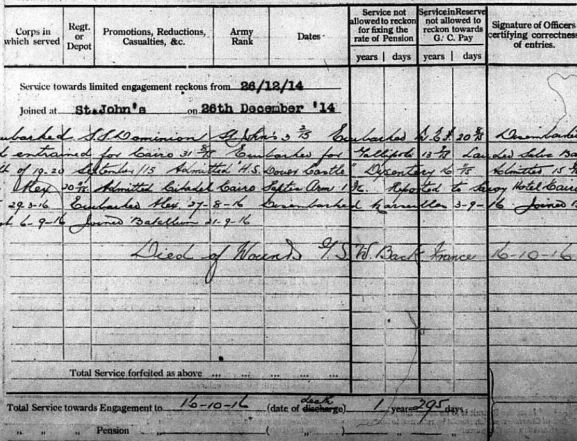 Corps in which served
Regt. or Depot
Promotions, Reductions, Casualties, &c.
Army Rank
Dates
Service not allowed to reckon for fixing the rate of Pension
years days
Service in Reserve not allowed to reckon towards G. C. Pay
years days
Signature of Officers certifying correctness of entries.
Service towards limited engagement reckons from 26/12/14
Joined at St. John's on 26th December '14
embarked S.S. Dominion St John's Embarked B.E.F. 20 Disembarked
entrained for Cairo 31 Embarked for Gallipoli 13 Landed Suvla Bay
of 19.20 September /15 Admitted H.S. "Dover Castle" Dysentery Admitted 15
Alex Admitted Citadel Cairo Reported to Savoy Hotel Cairo
29-3-16 Embarked Alex. 27-8-16 Disembarked Marseilles 3-9-16 Joined
6-9-16 Joined Battalion 21-9-16
Died of Wounds G.S.W. Back France 16-10-16
Total Service forfeited as above ... ... ... ...
Total Service towards Engagement to 16-10-16 (date of death discharge) 1 years 295 days.
" " " Pension ( " " ) " "